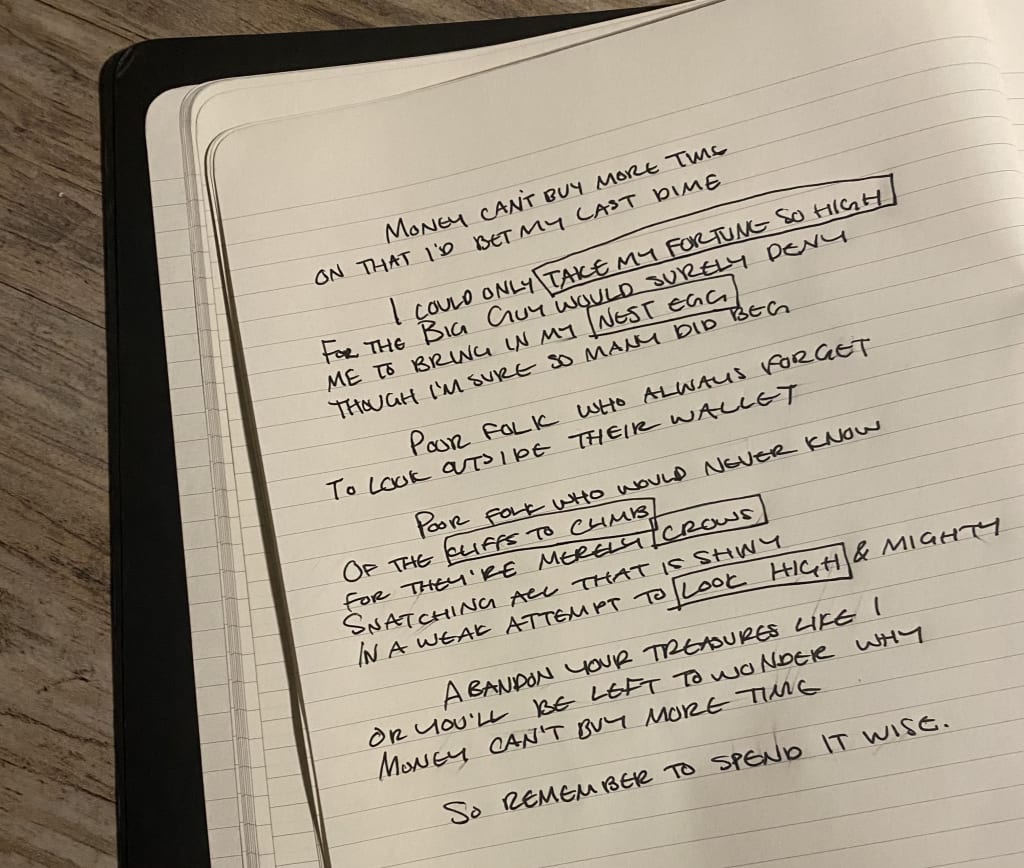 MONEY CAN'T BUY MORE TIME
ON THAT I'D BET MY LAST DIME
I COULD ONLY TAKE MY FORTUNE SO HIGH
FOR THE BIG GUY WOULD SURELY DENY
ME TO BRING IN MY NEST EGG
THOUGH I'M SURE SO MANY DID BEG
POOR FOLK WHO ALWAYS FORGET
TO LOOK OUTSIDE THEIR WALLET
POOR FOLK WHO WOULD NEVER KNOW
OF THE CLIFFS TO CLIMB
FOR THEY'RE MERELY CROWS
SNATCHING ALL THAT IS SHINY
IN A WEAK ATTEMPT TO LOOK HIGH & MIGHTY
ABANDON YOUR TREASURES LIKE I
OR YOU'LL BE LEFT TO WONDER WHY
MONEY CAN'T BUY MORE TIME
SO REMEMBER TO SPEND IT WISE.